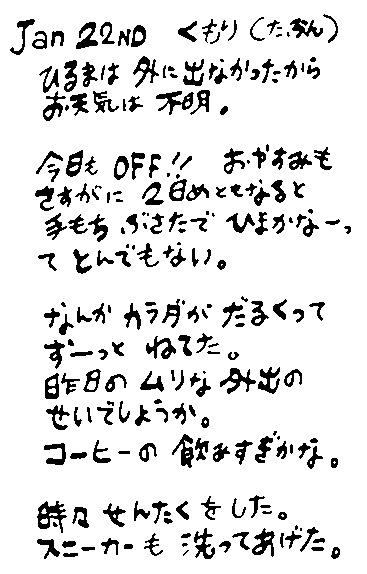 Jan 22ND くもり(たぶん)
ひるまは 外に出なかったから
お天気は 不明。
今日も OFF!! おやすみも
さすがに 2日めともなると
手もち ぶさたで ひまかなーっ
て とんでもない。
なんか カラダが だるくって
ずーっと ねてた。
昨日の ムリな 外出の
せいでしょうか。
コーヒーの 飲みすぎかな。
時々 せんたくをした。
スニーカーも 洗ってあげた。